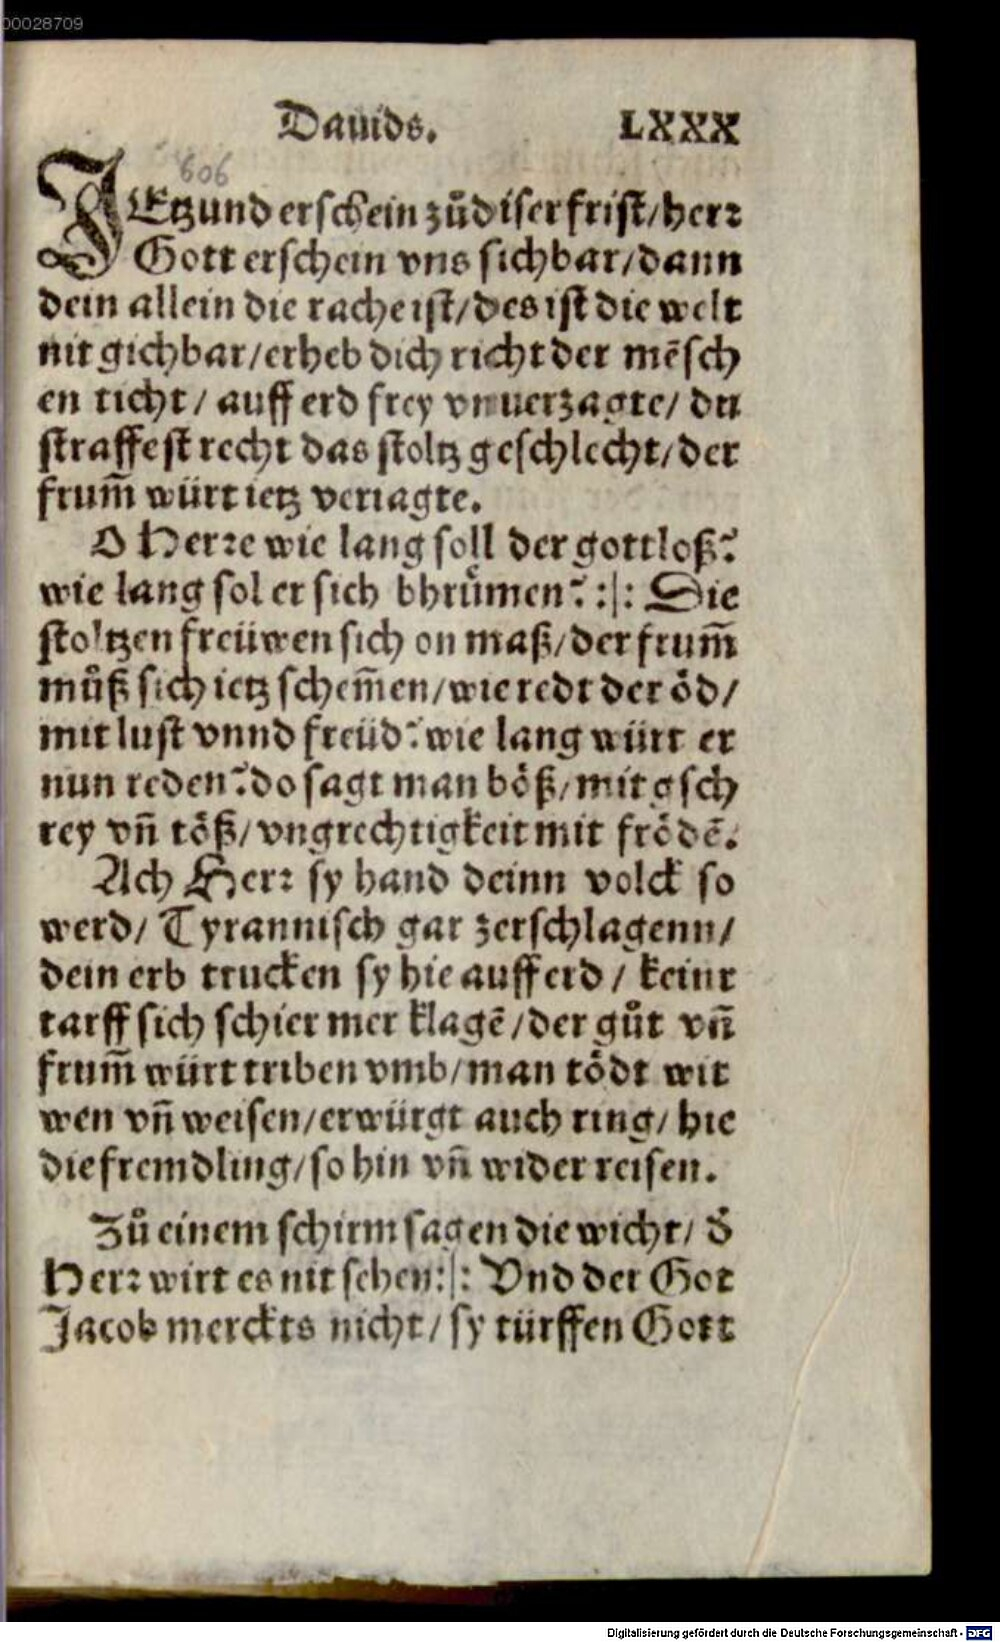 00028709
Dauids. LXXX
606
JEtzund erschein zů diser frist/ herr
Gott erschein vns sichbar/ dann
dein allein die rache ist/ des ist die welt
nit gichbar/ erheb dich richt der mẽsch
en ticht/ auff erd frey vnuerzagte/ du
straffest recht das stoltz geschlecht/ der
frum̃ würt ietz veriagte.
O Herre wie lang soll der gottloß?
wie lang sol er sich bhrůmen? :|: Die
stoltzen freüwen sich on maß/ der frum̃
můß sich ietz schem̃en/ wie redt der öd/
mit lust vnnd freüd? wie lang würt er
nun reden? do sagt man böß/ mit gsch
rey vñ töß/ vngrechtigkeit mit frödẽ.
Ach Herr sy hand deinn volck so
werd/ Tyrannisch gar zerschlagenn/
dein erb trucken sy hie auff erd/ keinr
tarff sich schier mer klagẽ/ der gůt vñ
frum̃ würt triben vmb/ man tödt wit
wen vñ weisen/ erwürgt auch ring/ hie
die fremdling/ so hin vñ wider reisen.
Zů einem schirm sagen die wicht/ d̓
Herr wirt es nit sehen :|: Vnd der Got
Jacob merckts nicht/ sy türffen Gott
Digitalisierung gefördert durch die Deutsche Forschungsgemeinschaft - DFG